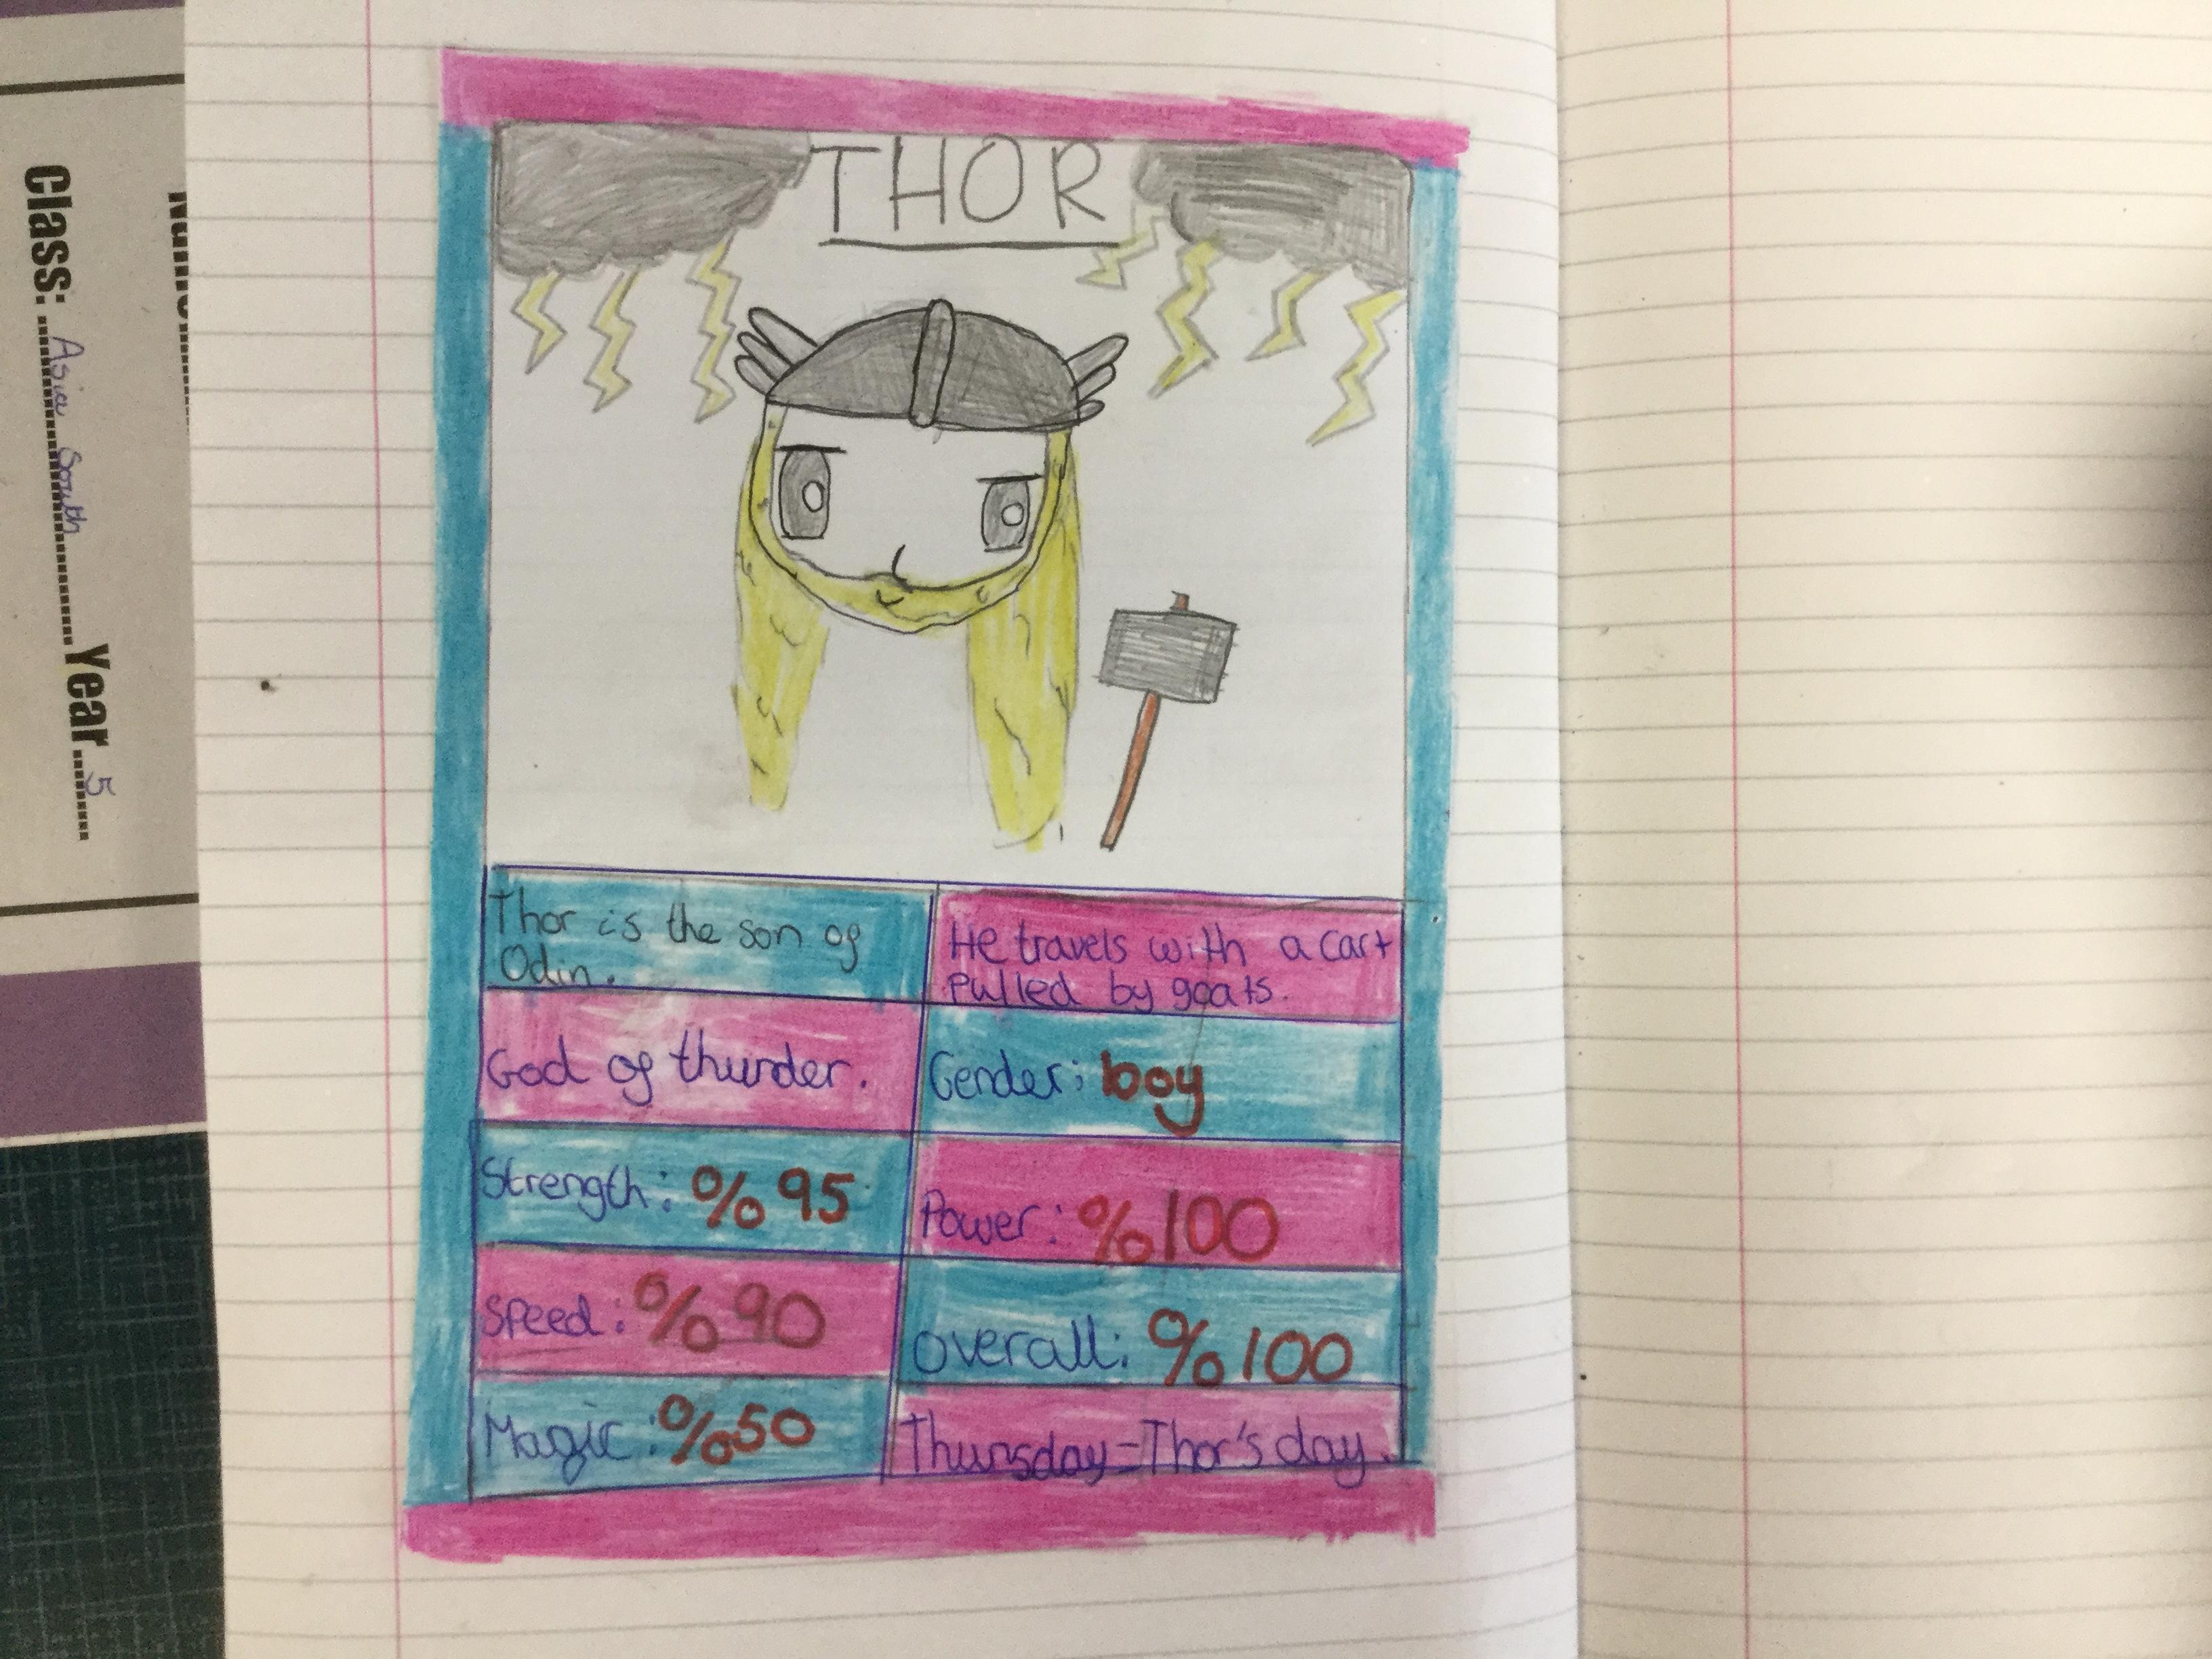 THOR
Thor is the son of
Odin.
He travels with a cart
pulled by goats.
God of thunder.
Gender: boy
Strength: %95
Power: %100
Speed: %90
overall: %100
Magic: %50
Thursday=Thor's day.
Class: Asia South Year 5